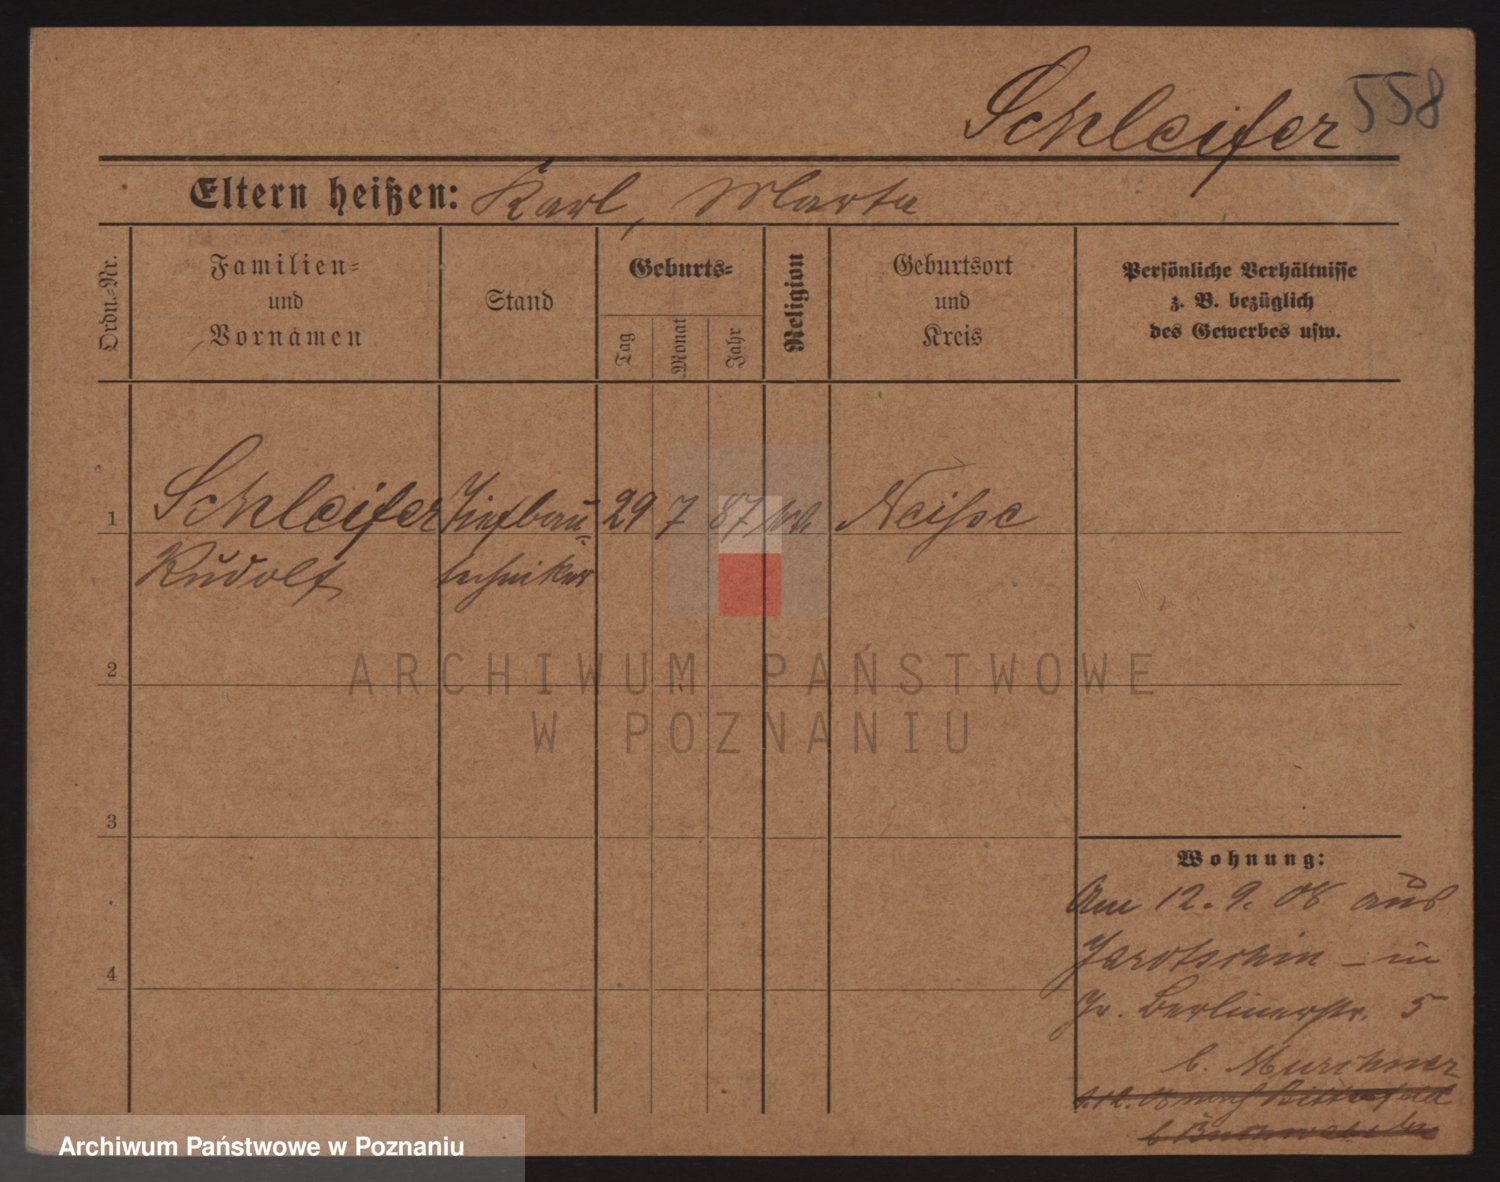 Schleifer 558
Eltern heißen: Karl, Marta
Ordn.-Nr.
Familien-
und
Vornamen
Stand
Geburts-
Tag
Monat
Jahr
Religion
Geburtsort
und
Kreis
Persönliche Verhältnisse
z. B. bezüglich
des Gewerbes usw.
1 Schleifer Tiefbau= 29 7 87 Neisse
Rudolf techniker
2
3
4
Wohnung:
Am 12. 9. 08 aus
Jarotschin – in
Berlinerstr. 5
b.
08 nach Bitterfeld
ARCHIWUM PAŃSTWOWE
W POZNANIU
Archiwum Państwowe w Poznaniu